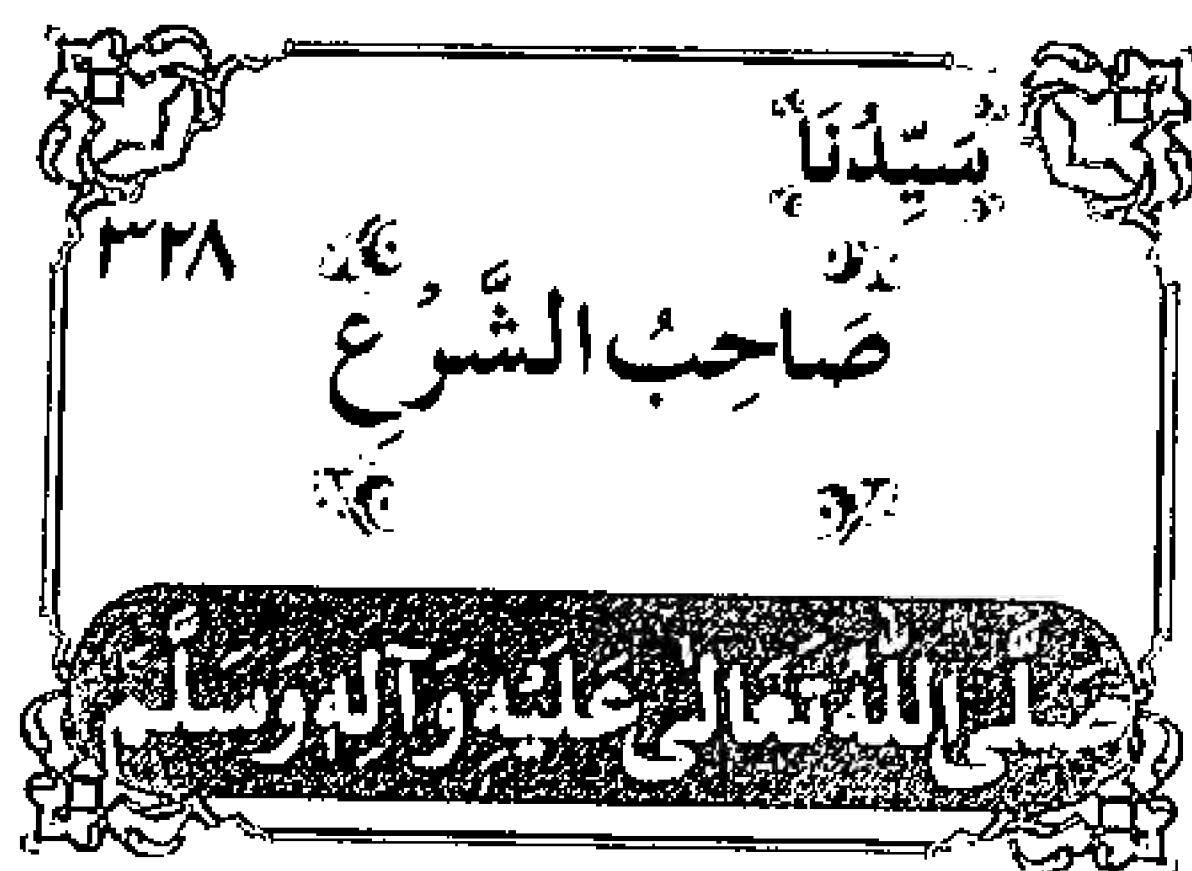 سَيِّدُنَا
٣٢٨
صَاحِبُ الشَّرْعِ
صَلَّى اللهُ تَعَالىٰ عَلَيْهِ وَآلِهِ وَسَلَّمَ